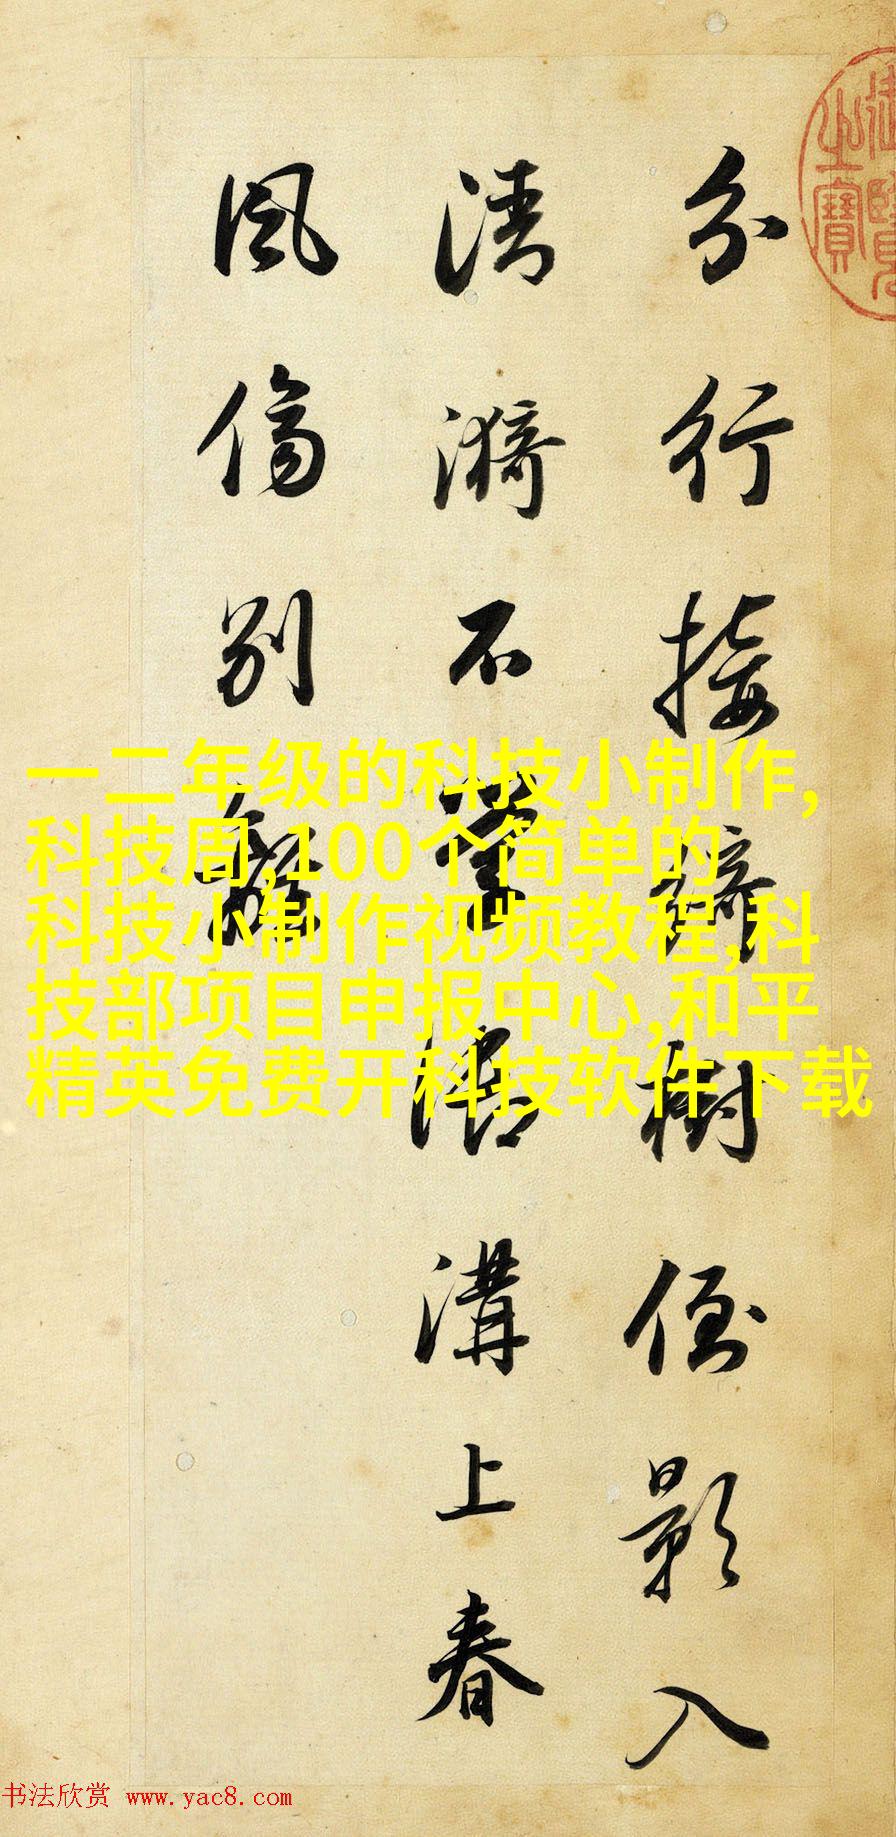 分行接綺樹倒影入
清漪不學御溝上春
風傷別離
之寶
一二年级的科技小制作,
科技周,100个简单的
科技小制作视频教程,科
技部项目申报中心,和平
精英免费开科技软件下载
书法欣赏 www.yac8.com